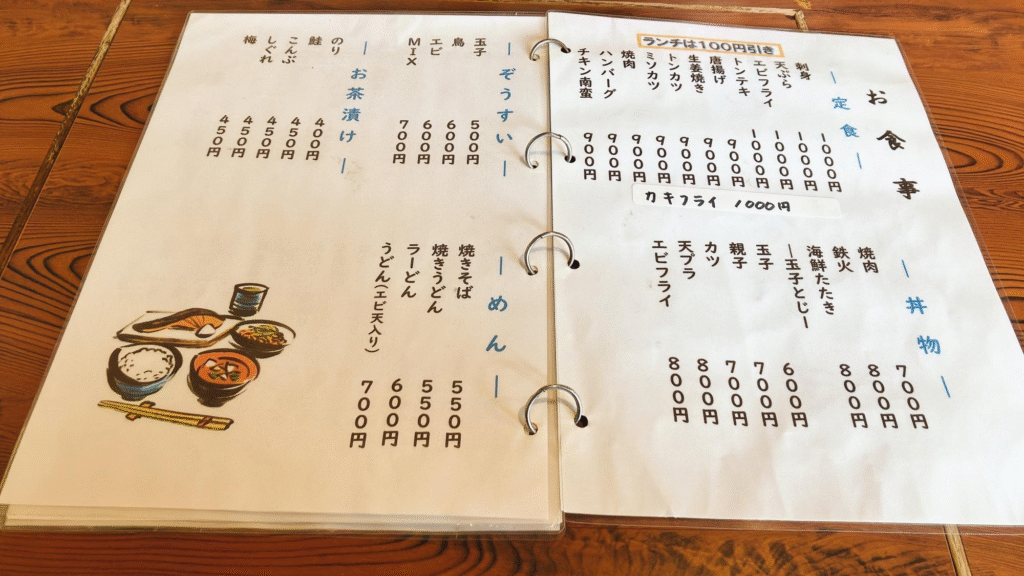 お食事
ー定食ー
ランチは100円引き
刺身 1000円
天ぷら 1000円
エビフライ 1000円
トンテキ 1000円
唐揚げ 900円
生姜焼き 900円
トンカツ 900円
ミソカツ 900円
焼肉 900円
ハンバーグ 900円
チキン南蛮 900円
カキフライ 1000円
ー丼物ー
焼肉 700円
鉄火 800円
海鮮たたき 800円
ー玉子とじー
玉子 600円
親子 700円
カツ 700円
天プラ 800円
エビフライ 800円
ーぞうすいー
玉子 500円
鳥 600円
エビ 600円
MIX 700円
ーお茶漬けー
のり 400円
鮭 450円
こんぶ 450円
しぐれ 450円
梅 450円
ーめんー
焼きそば 550円
焼きうどん 550円
ラーどん 600円
うどん(エビ天入り) 700円